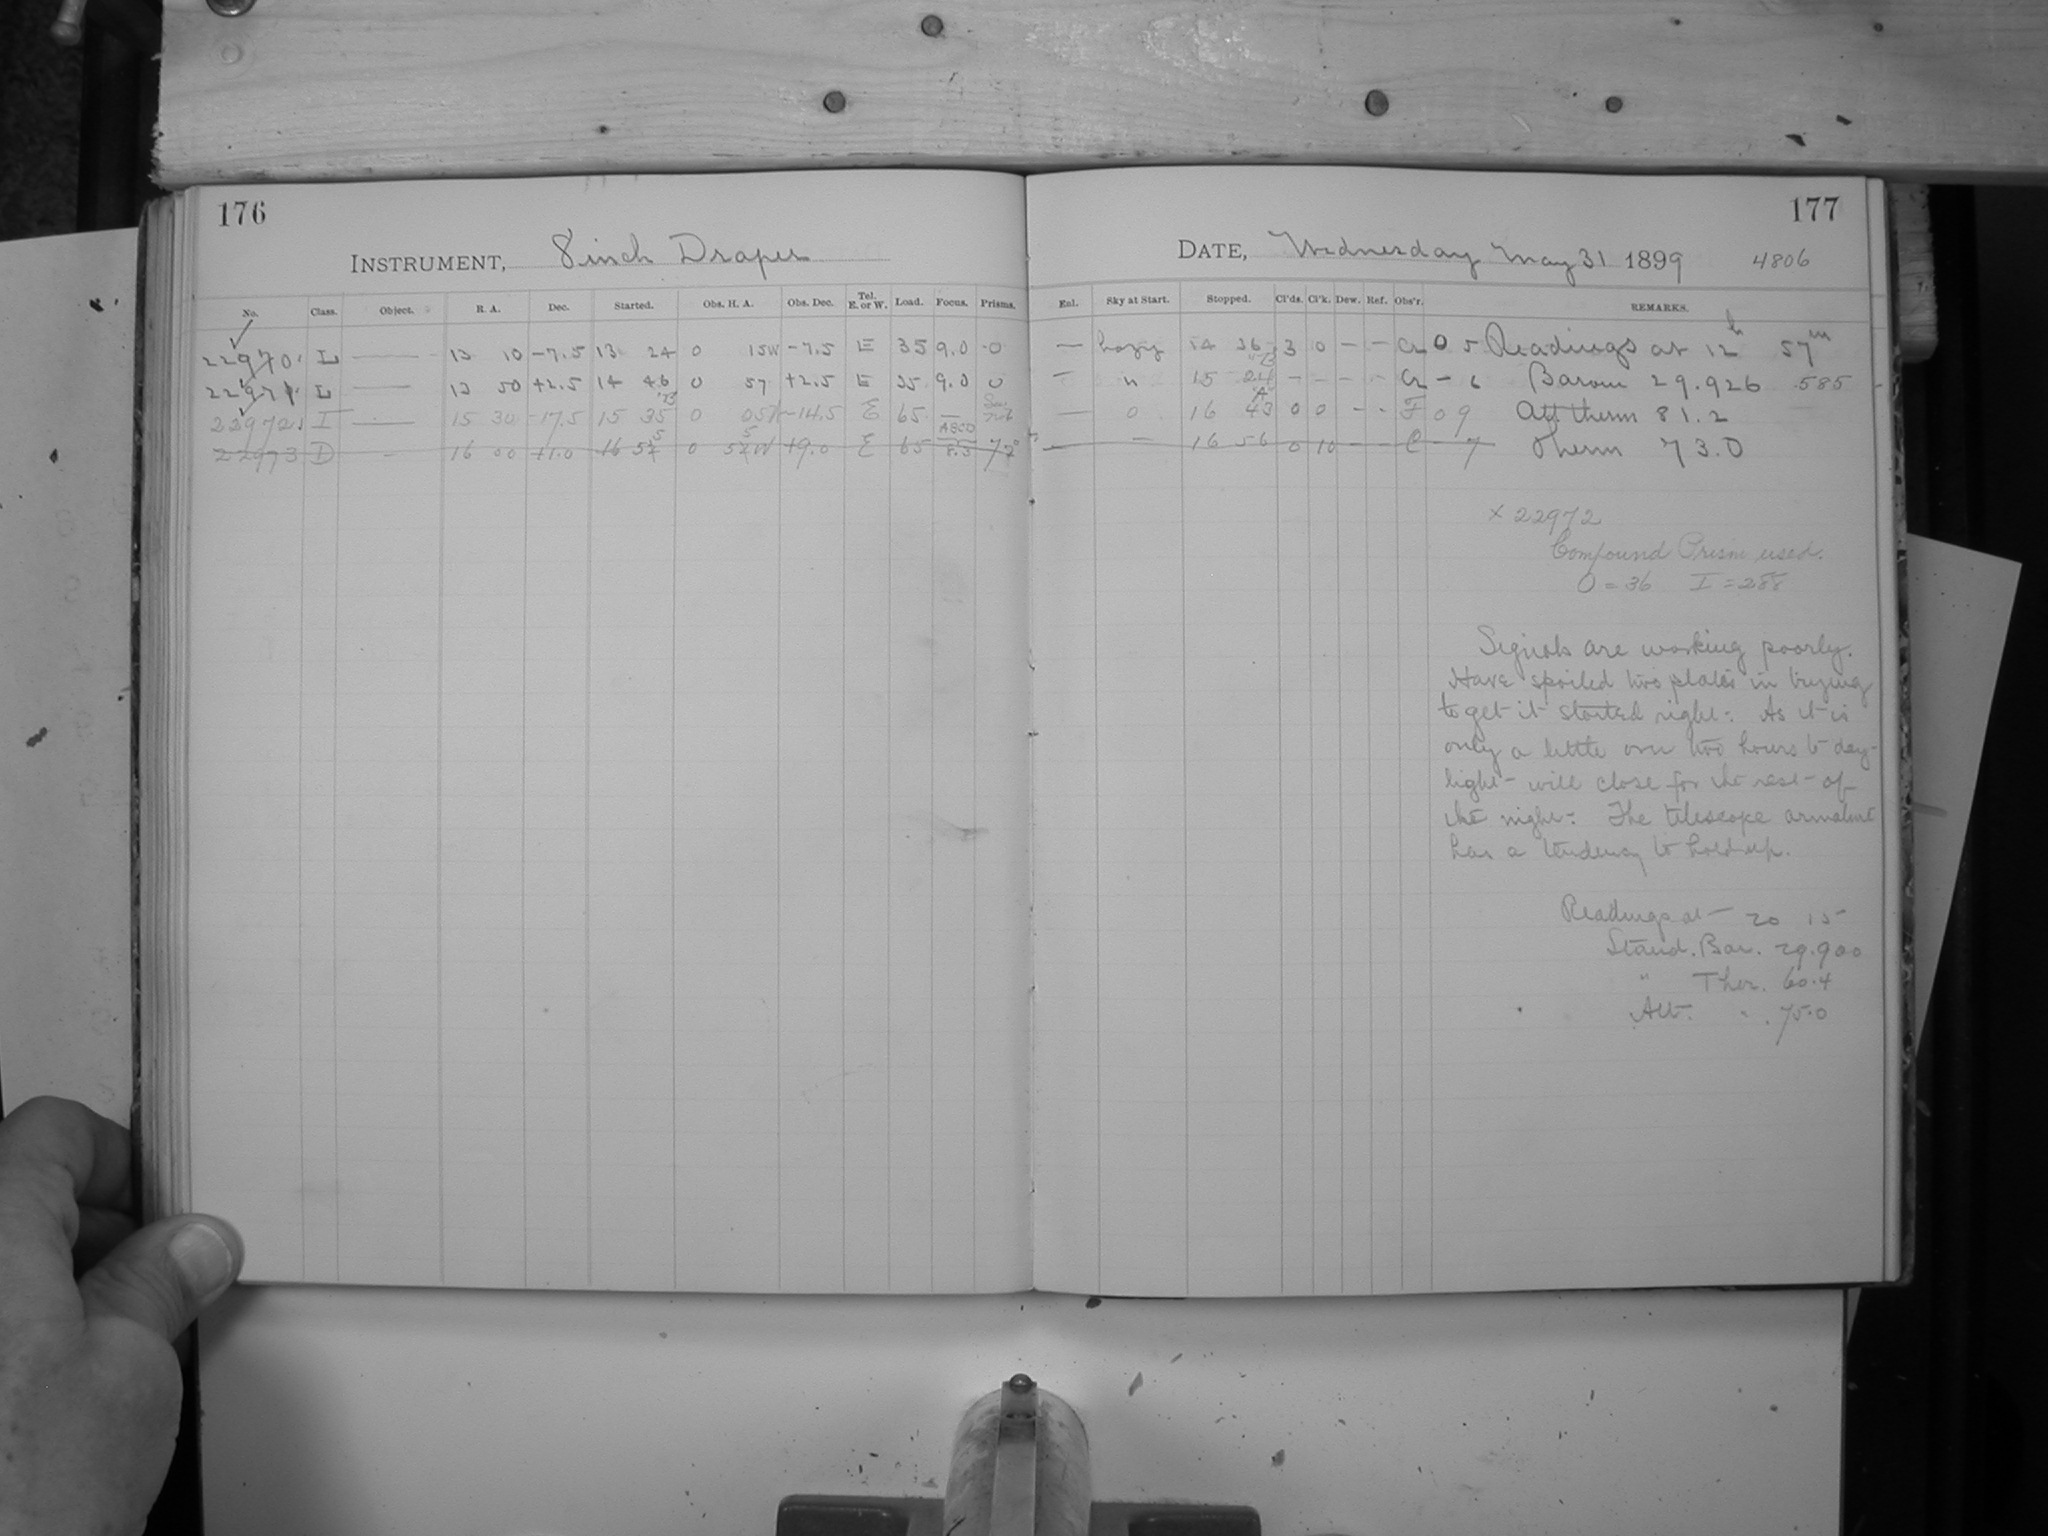 176
INSTRUMENT, 8 inch Draper
No. Class. Object. R. A. Dec. Started. Obs. H. A. Obs. Dec. Tel. E. or W. Load. Focus. Prisms.
22970 L — 13 10 -7.5 13 24 0 15W -7.5 E 35 9.0 0
22971 L — 13 50 +2.5 14 46 0 57 +2.5 E 35 9.0 0
22972 I — 15 30 -17.5 15 35 0 05 -14.5 E 65 —
22973 D - 16 00 +1.0 16 55 0 55W +9.0 E 65 8.5
177
DATE, Wednesday May 31 1899 4806
Exl. Sky at Start. Stopped. Cl'ds. Cl'k. Dew. Ref. Obs'r. REMARKS.
— hazy 14 36 3 0 - - Cr 0 5 Readings at 12h 57m
— " 15 24 - - - - Cr - 6 Barom 29.926 .585
— 0 16 43 0 0 - - F 0 9 Att therm 81.2
— — 16 56 0 10 - - C 7 Therm 73.0
x 22972
Compound Prism used.
O = 36 I = 288
Signals are working poorly.
Have spoiled two plates in trying
to get it started right. As it is
only a little over two hours to day-
light will close for the rest of
the night. The telescope armature
has a tendency to hold up.
Readings at 20 15
Stand. Bar. 29.900
" Ther. 60.4
Att. " 75.0